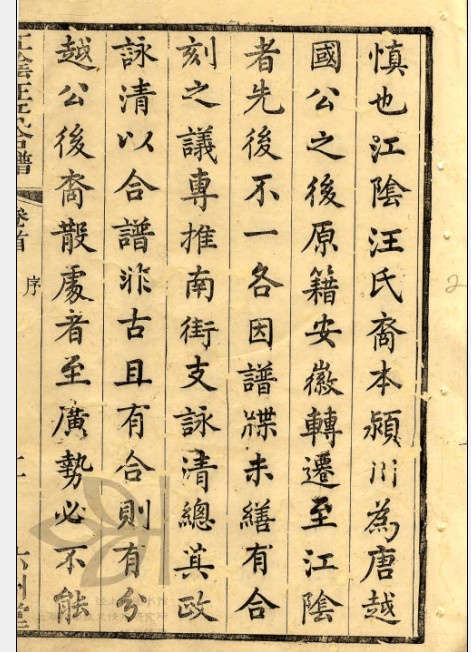 慎也江陰汪氏裔本潁川為唐越
國公之後原籍安徽轉遷至江陰
者先後不一各因譜牒未繕有合
刻之議專推南街支詠清總其政
詠清以合譜非古且有合則有分
越公後裔散處者至廣勢必不能
卷首 序